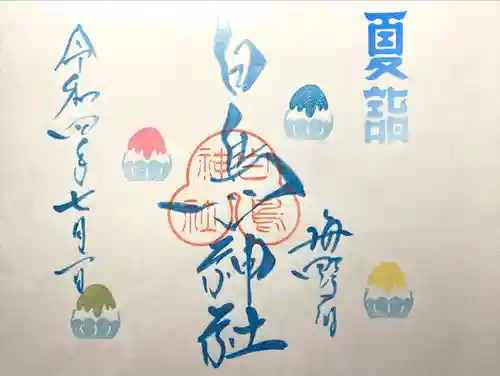 夏詣
海野宿
白鳥神社
白鳥神社
令和四年七月一日